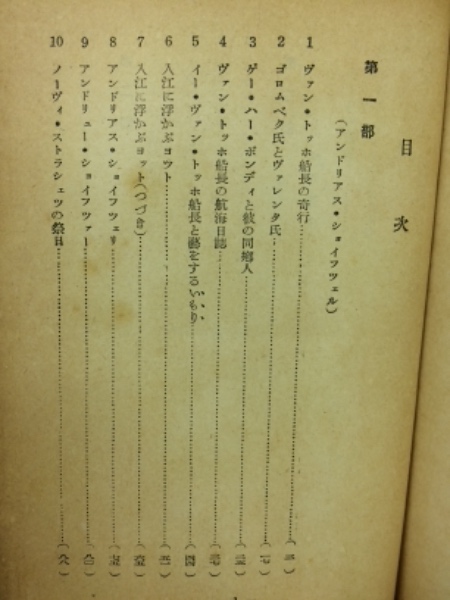 目次
第一部
(アンドリアス・ショイフツェル)
1 ヴァン・トッホ船長の奇行
2 ゴロムベク氏とヴァレンタ氏
3 ゲー・ハー・ボンディと彼の同郷人
4 ヴァン・トッホ船長の航海日誌
5 イー・ヴァン・トッホ船長と藝をするいもり
6 入江に浮かぶヨット
7 入江に浮かぶヨット(つづき)
8 アンドリアス・ショイフツェリ
9 アンドリュー・ショイフツァー
10 ノーヴィ・ストラシェツの祭日